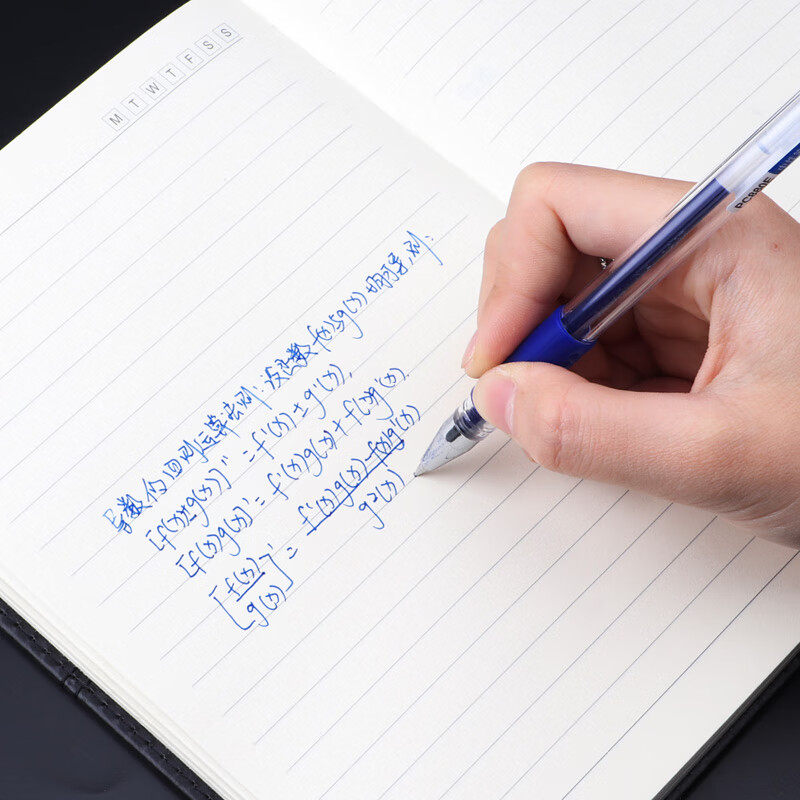 M T W T F S S
导数的四则运算法则:设函数f(x)与g(x)均可导,则:
[f(x)±g(x)]''=f'(x)±g'(x),
[f(x)g(x)]'=f'(x)g(x)+f(x)g'(x).
[f(x)/g(x)]'=f'(x)g(x)-f(x)g'(x)/g2(x)